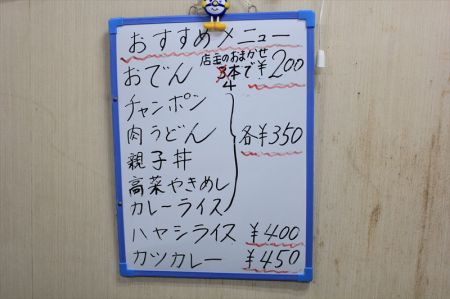 おすすめメニュー
店主のおまかせ
おでん 3本で¥200
4
チャンポン
肉うどん 各¥350
親子丼
高菜やきめし
カレーライス
ハヤシライス ¥400
カツカレー ¥450